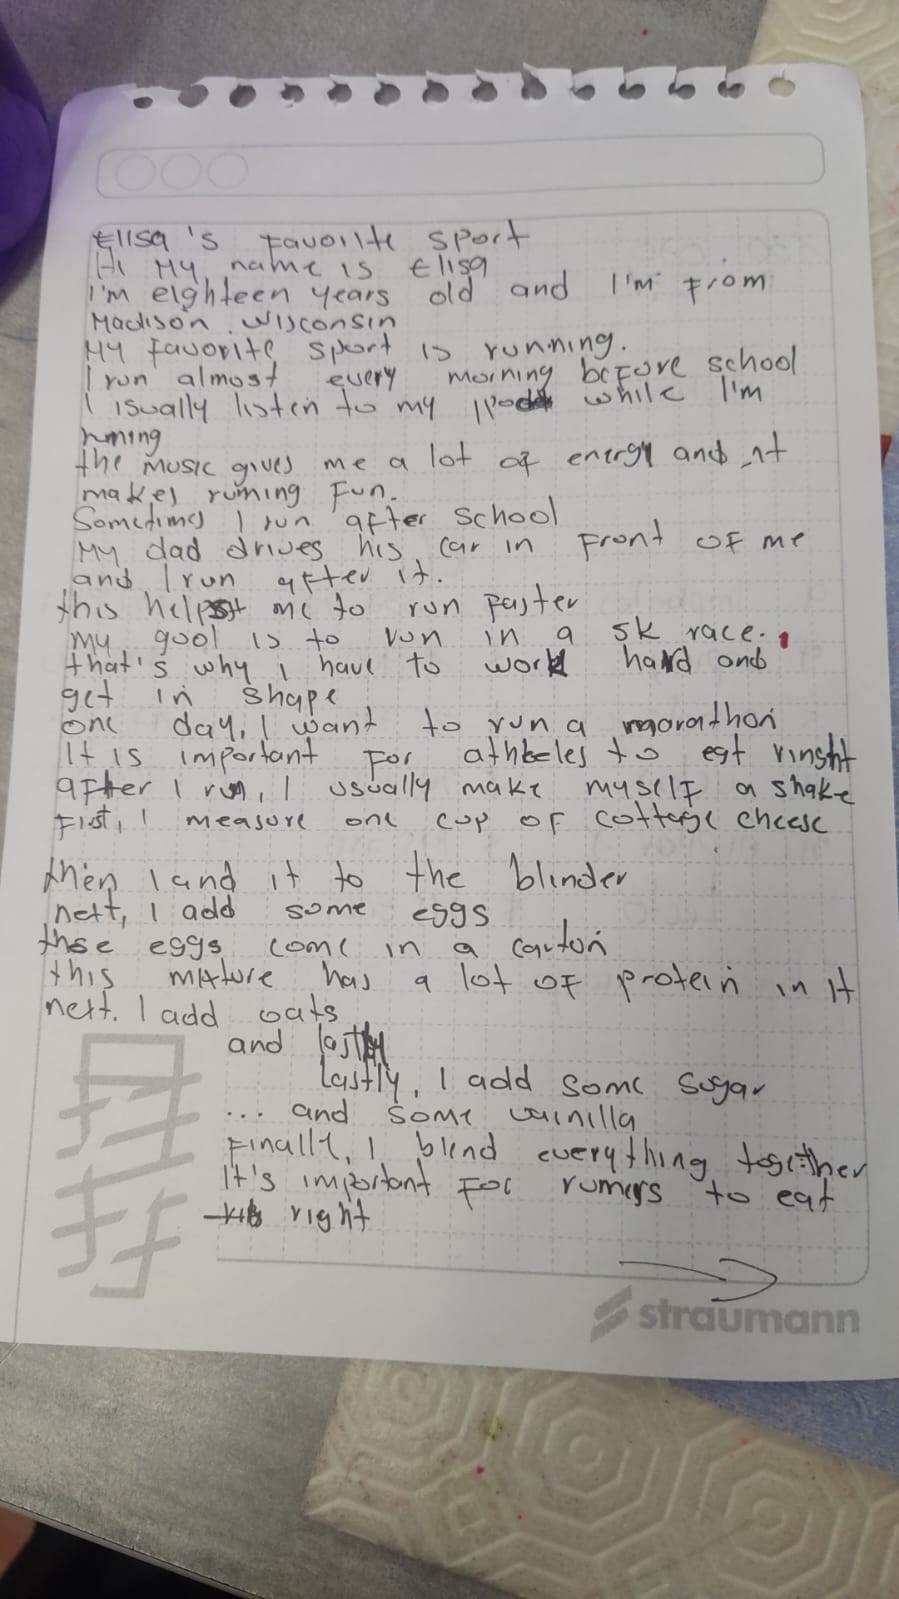 Elisa's Favorite sport
Hi My name is Elisa
I'm eighteen years old and I'm From
Madison, Wisconsin
My favorite sport is running.
I run almost every morning before school
I isually listen to my while I'm
runing
the music gives me a lot of energy and it
makes runing Fun.
Sometimes I run after school
My dad drives his car in Front OF me
and I run after it.
this helps me to run Faster
my gool is to run in a 5k race.
that's why i have to work hard and
get in shape
one day, I want to run a marathon
It is important For to eat rinsht
after I run, I usually make myselF a shake
First, I measure one cup OF cottage cheese
then I and it to the blinder
nett, I add some eggs
thse eggs come in a carton
this mixture has a lot OF protein in it
nett. I add oats
and lastly
Lastly, I add some sugar
... and some vainilla
Finally, I blend everything together
It's important For runners to eat
right
straumann